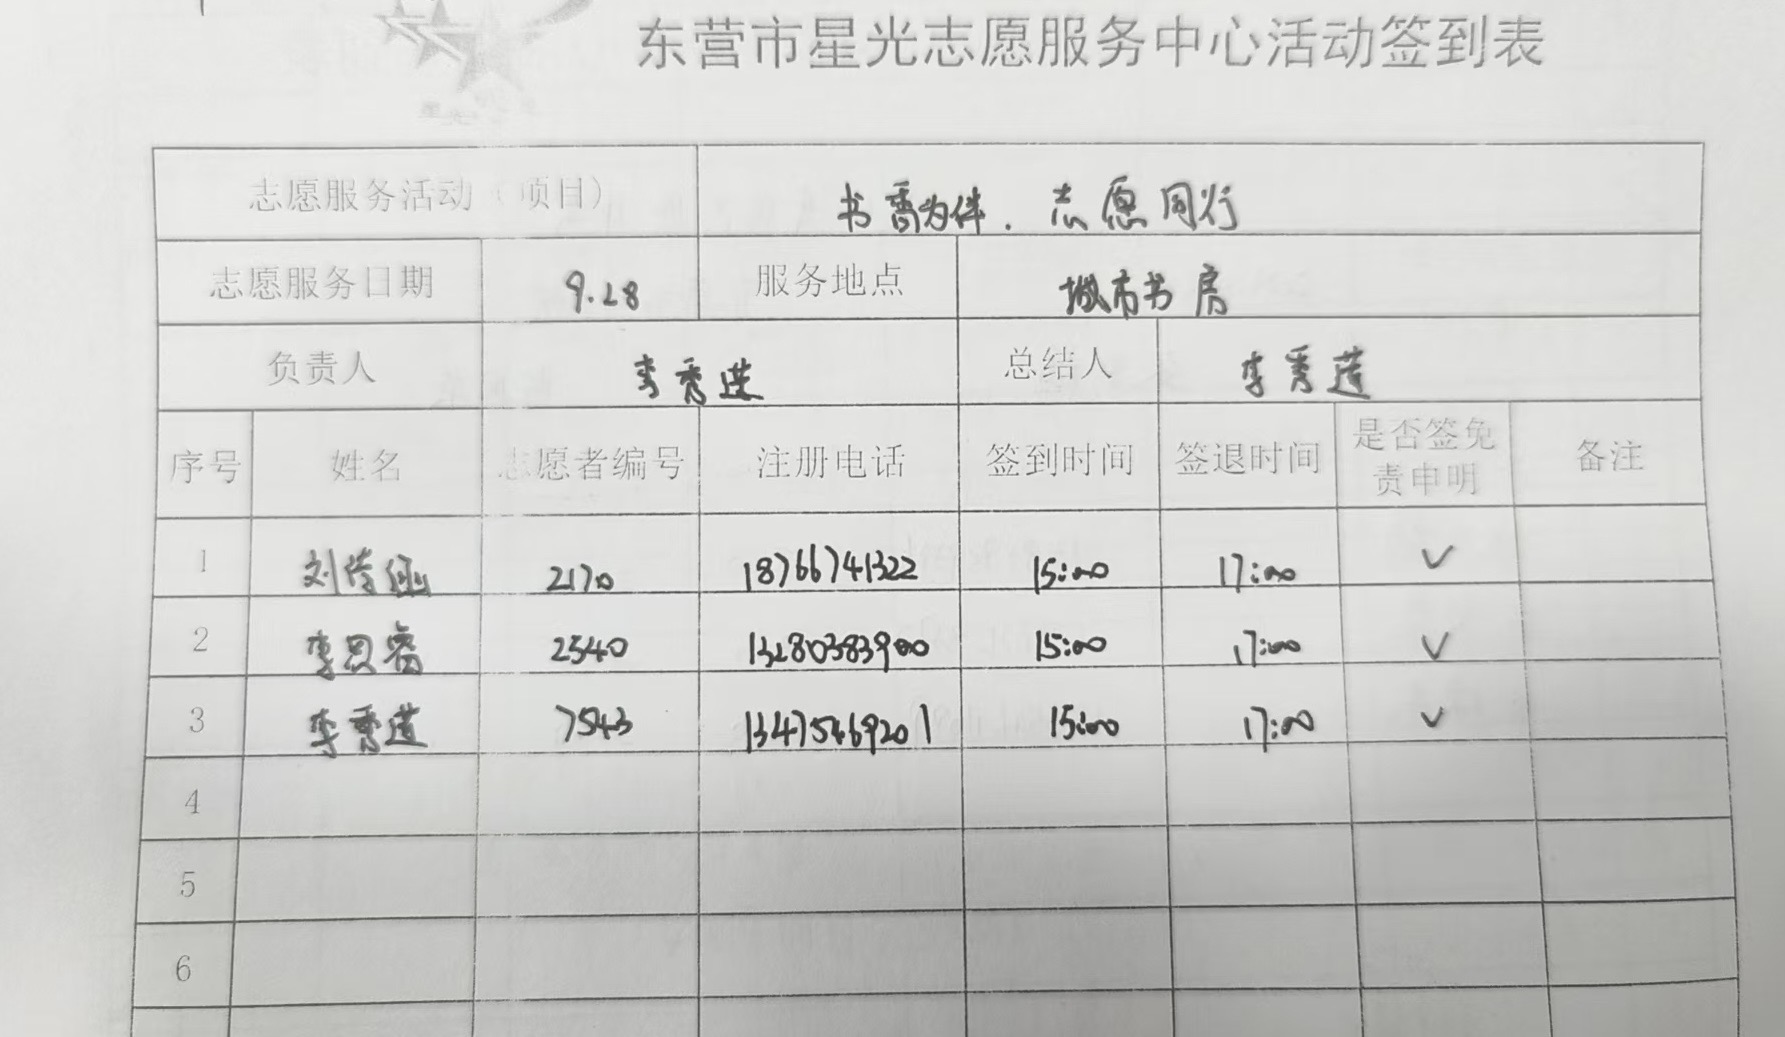 东营市星光志愿服务中心活动签到表
志愿服务活动（项目） 书香为伴．志愿同行
志愿服务日期 9.28 服务地点 城市书房
负责人 李秀莲 总结人 李秀莲
序号 姓名 志愿者编号 注册电话 签到时间 签退时间 是否签免责申明 备注
1 刘诗涵 2170 18766741322 15:00 17:00 ✓
2 李思睿 2540 13280383900 15:00 17:00 ✓
3 李秀莲 7543 13475469201 15:00 17:00 ✓
4
5
6